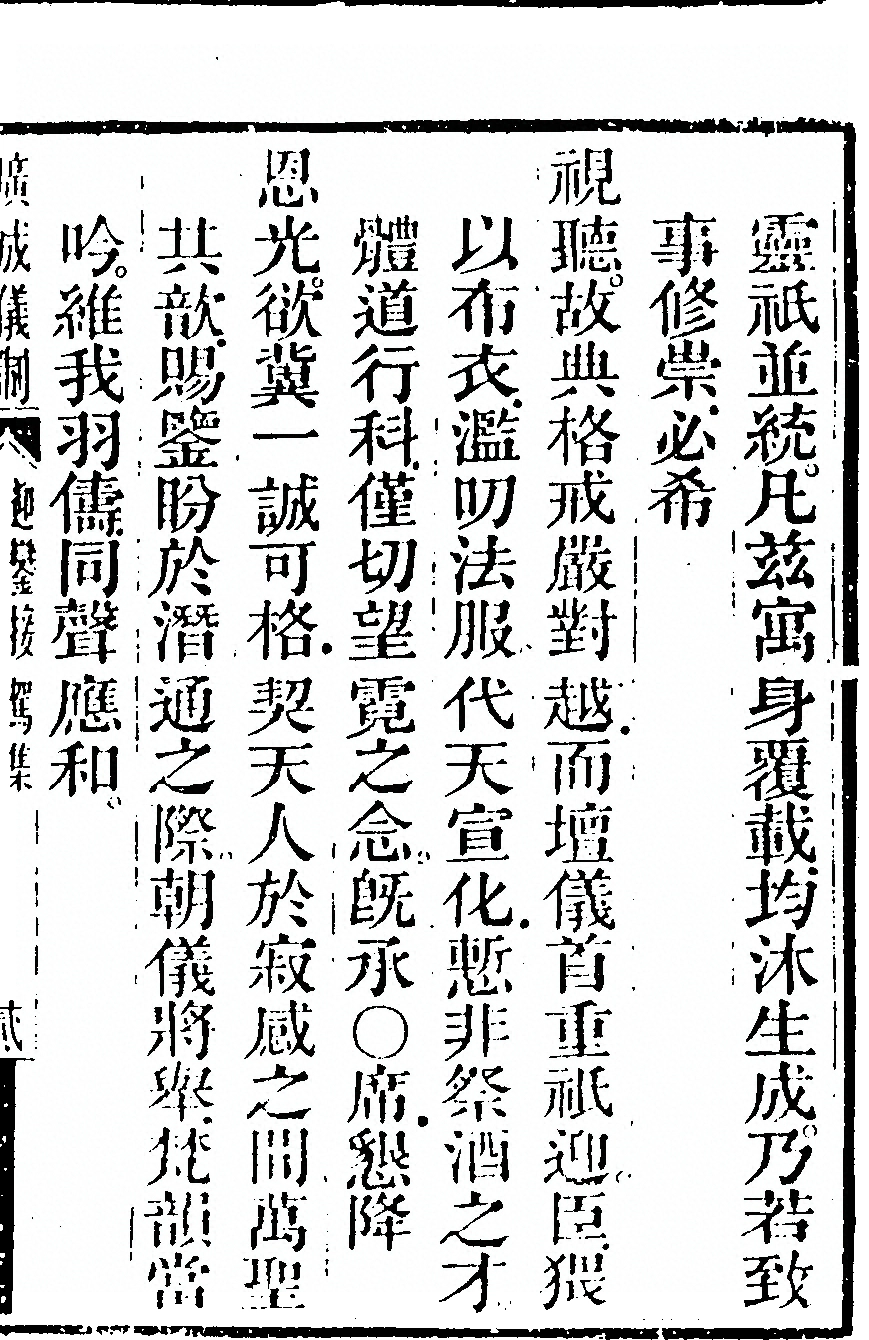 靈祇並統。凡茲寓身覆載均沐生成。乃若致
事修崇。必希
視聽。故典格戒嚴對越。而壇儀首重祇迎。臣猥
以布衣。濫叨法服。代天宣化。慙非祭酒之才。
體道行科。僅切望霓之念。旣承〇席。懇降
恩光。欲冀一誠可格。契天人於寂感之間萬聖
共歆。賜鑒盼於潛通之際。朝儀將舉。梵韻當
吟。維我羽儒。同聲應和。
廣成儀制 迎鑾接駕集 貳